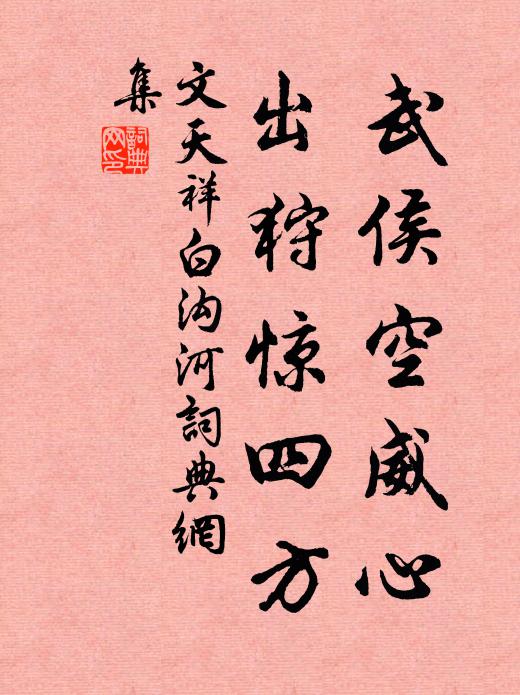 武侯空威心
出狩惊四方
文天祥白沟河詞典網
集
詞典
网印